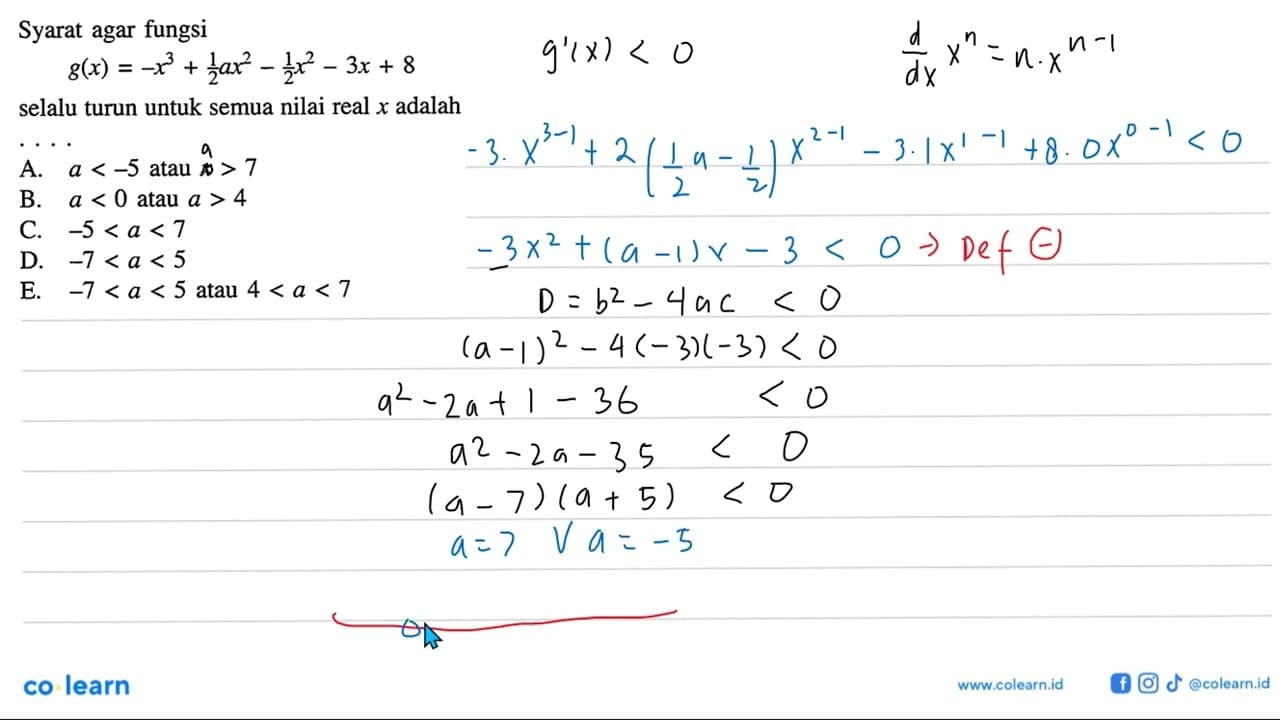 Syarat agar fungsi
g(x) = -x³ + ½ax² - ½x² - 3x + 8
selalu turun untuk semua nilai real x adalah
. . . .
a
A. a < -5 atau > 7
B. a < 0 atau a > 4
C. -5 < a < 7
D. -7 < a < 5
E. -7 < a < 5 atau 4 < a < 7
g'(x) < 0
d/dx xⁿ = n·xⁿ⁻¹
-3·x³⁻¹ + 2(1/2 a - 1/2)x²⁻¹ - 3·1x¹⁻¹ + 8·0x⁰⁻¹ < 0
-3x² + (a-1)x - 3 < 0 → Def (-)
D = b² - 4ac < 0
(a-1)² - 4(-3)(-3) < 0
a² - 2a + 1 - 36 < 0
a² - 2a - 35 < 0
(a - 7)(a + 5) < 0
a = 7 V a = -5
co learn
www.colearn.id
@colearn.id